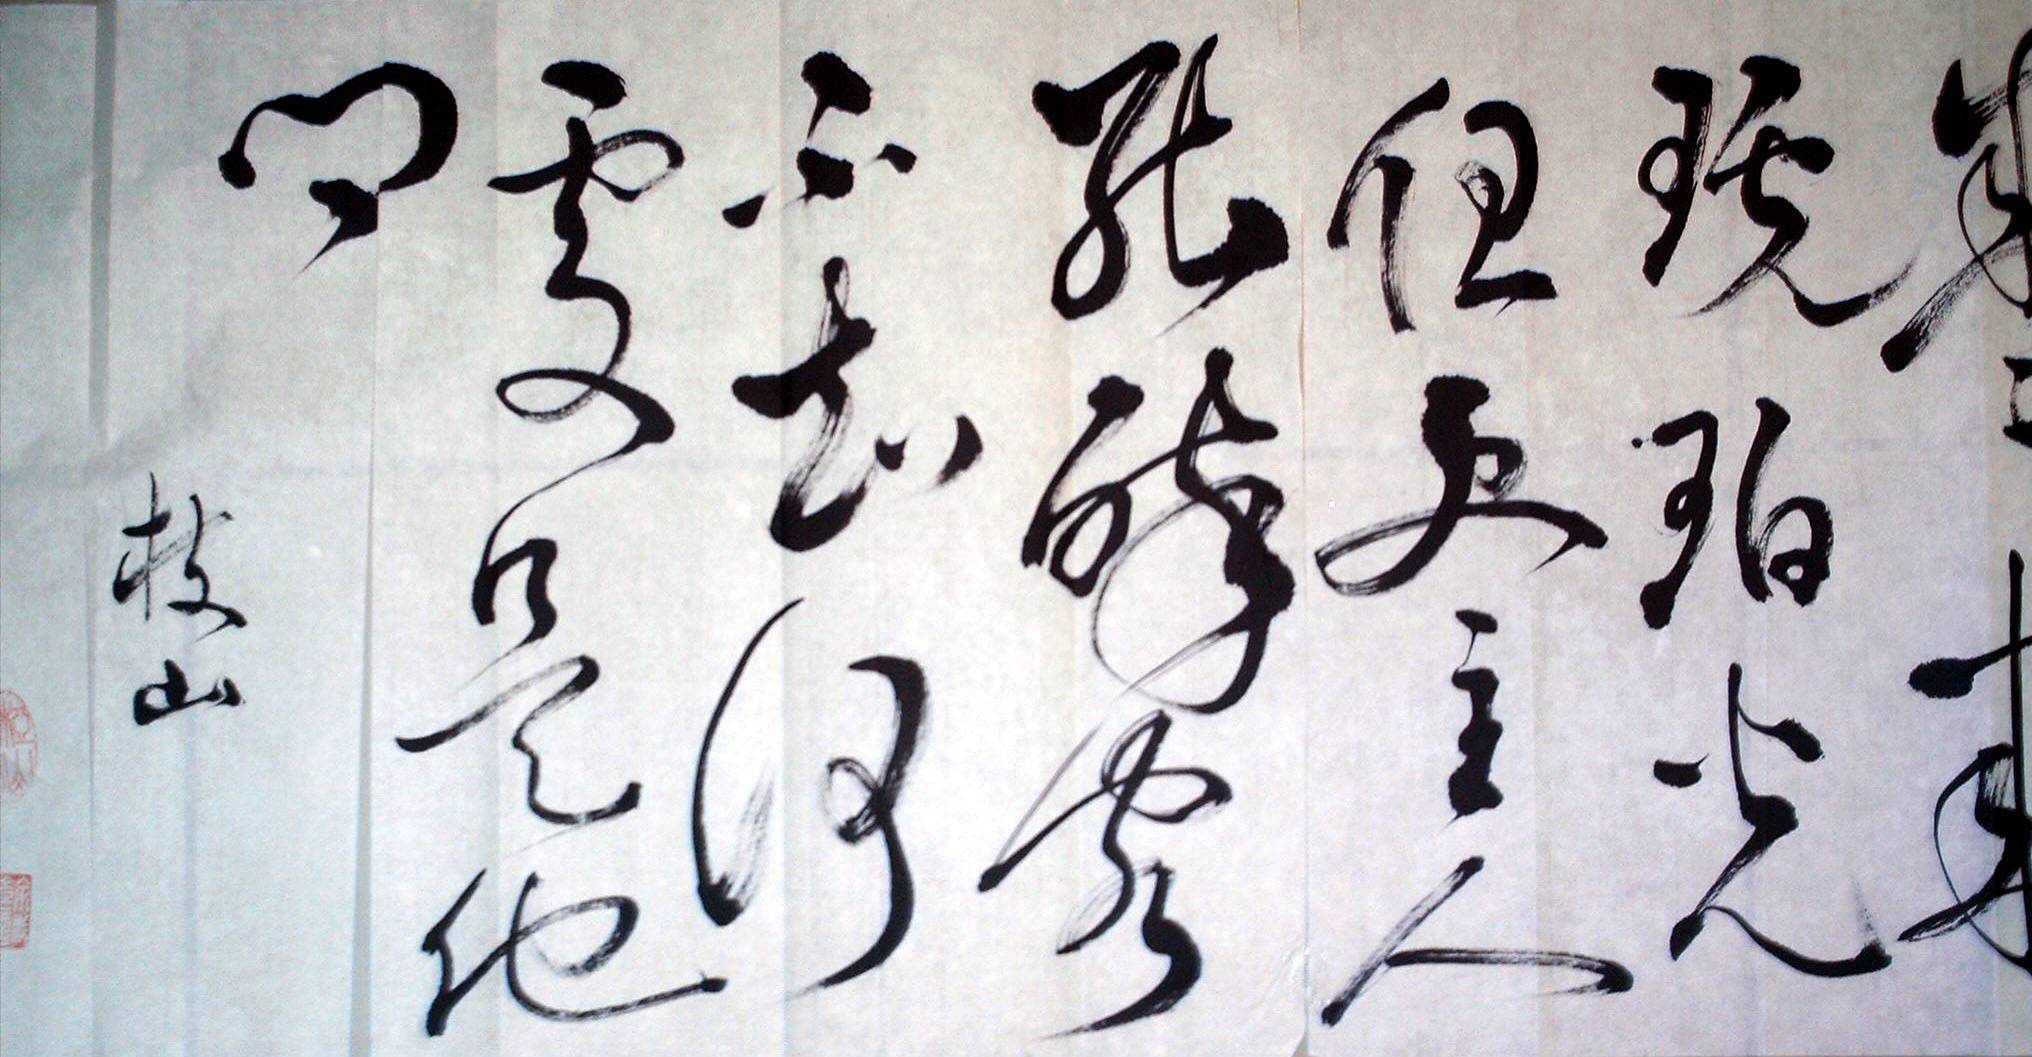 琥珀光
但使主人
能醉客
不知何
處是他
鄉
枝山